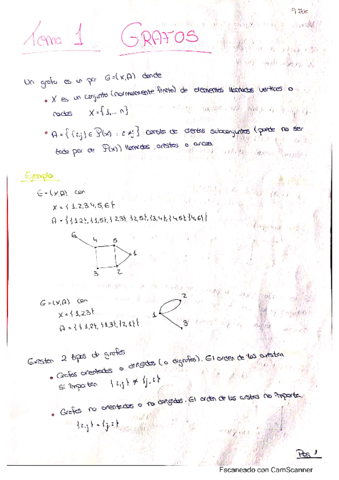 Tema 1 GRAFOS
Un grafo es un par G=(X,A) donde
• X es un conjunto (normalmente finito) de elementos llamados vertices o
nodos X={1,...n}
• A={{i,j}∈P(x)} consta de ciertos subconjuntos (puede no ser
todo par de P(x)) llamados, aristas o arcos.
Ejemplo
G=(X,A) con
X={1,2,3,4,5,6}
A={{1,2},{1,5},{2,3},{2,5},{3,4},{4,5},{4,6}}
6
4 5
1
3 2
G=(X,A) con
X={1,2,3}
A={{1,2},{1,3},{2,1}}
2
1
3
Existen 2 tipos de grafos
• Grafos orientados o dirigidos (o digrafos). El orden de las aristas
si importan {i,j} ≠ {j,i}
• Grafos no orientados o no dirigidos. El orden de las aristas no importa.
{i,j} = {j,i}
Pág 1
Escaneado con CamScanner